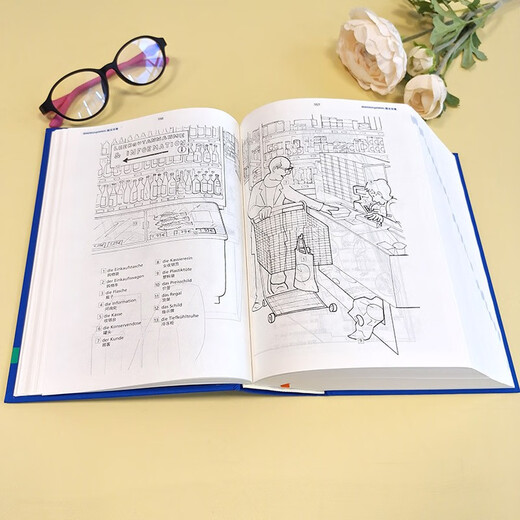 LEERGUTANNAHME
& INFORMATION
1 die Einkaufstasche
购物袋
2 der Einkaufswagen
购物车
3 die Flasche
瓶子
4 die Information
问询处
5 die Kasse
收银台
6 die Konservendose
罐头
7 der Kunde
顾客
die Kassiererin
收银员
9 die Plastiktüte
塑料袋
10 das Preisschild
价签
11 das Regal
货架
12 das Schild
指示牌
13 die Tiefkühltruhe
冷冻柜